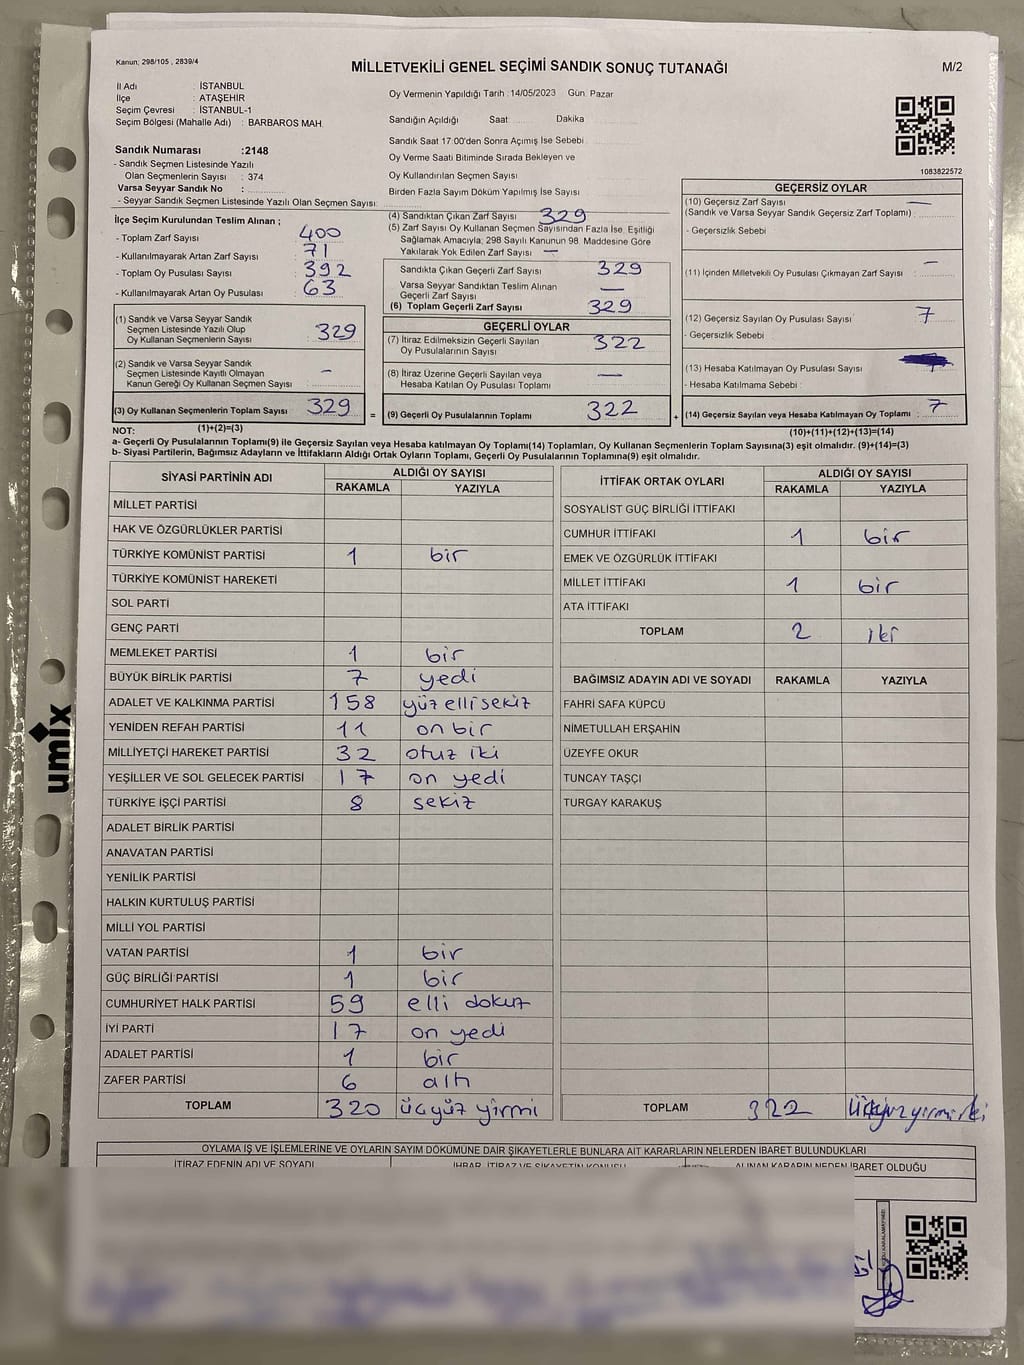 Kanun; 298/105 , 2839/4
MİLLETVEKİLİ GENEL SEÇİMİ SANDIK SONUÇ TUTANAĞI
M/2
İl Adı : İSTANBUL
İlçe : ATAŞEHİR
Seçim Çevresi : İSTANBUL-1
Seçim Bölgesi (Mahalle Adı) : BARBAROS MAH.
Oy Vermenin Yapıldığı Tarih : 14/05/2023 Gün: Pazar
Sandığın Açıldığı Saat: Dakika
Sandık Numarası :2148
- Sandık Seçmen Listesinde Yazılı
Olan Seçmenlerin Sayısı : 374
Varsa Seyyar Sandık No :
- Seyyar Sandık Seçmen Listesinde Yazılı Olan Seçmen Sayısı:
Sandık Saat 17:00'den Sonra Açımış İse Sebebi
Oy Verme Saati Bitiminde Sırada Bekleyen ve
Oy Kullandırılan Seçmen Sayısı
Birden Fazla Sayım Döküm Yapılmış İse Sayısı
1083822572
İlçe Seçim Kurulundan Teslim Alınan ;
- Toplam Zarf Sayısı : 400
- Kullanılmayarak Artan Zarf Sayısı : 71
- Toplam Oy Pusulası Sayısı : 392
- Kullanılmayarak Artan Oy Pusulası : 63
(1) Sandık ve Varsa Seyyar Sandık
Seçmen Listesinde Yazılı Olup
Oy Kullanan Seçmenlerin Sayısı : 329
(2) Sandık ve Varsa Seyyar Sandık
Seçmen Listesinde Kayıtlı Olmayan
Kanun Gereği Oy Kullanan Seçmen Sayısı : -
(3) Oy Kullanan Seçmenlerin Toplam Sayısı : 329
(1)+(2)=(3)
=
(4) Sandıktan Çıkan Zarf Sayısı 329
(5) Zarf Sayısı Oy Kullanan Seçmen Sayısından Fazla İse, Eşitliği
Sağlamak Amacıyla; 298 Sayılı Kanunun 98. Maddesine Göre
Yakılarak Yok Edilen Zarf Sayısı : —
Sandıkta Çıkan Geçerli Zarf Sayısı 329
Varsa Seyyar Sandıktan Teslim Alınan
Geçerli Zarf Sayısı —
(6) Toplam Geçerli Zarf Sayısı 329
GEÇERLİ OYLAR
(7) İtiraz Edilmeksizin Geçerli Sayılan
Oy Pusulalarının Sayısı 322
(8) İtiraz Üzerine Geçerli Sayılan veya
Hesaba Katılan Oy Pusulası Toplamı —
(9) Geçerli Oy Pusulalarının Toplamı 322
+
GEÇERSİZ OYLAR
(10) Geçersiz Zarf Sayısı —
(Sandık ve Varsa Seyyar Sandık Geçersiz Zarf Toplamı) :
- Geçersizlik Sebebi
(11) İçinden Milletvekili Oy Pusulası Çıkmayan Zarf Sayısı : —
(12) Geçersiz Sayılan Oy Pusulası Sayısı : 7
- Geçersizlik Sebebi
(13) Hesaba Katılmayan Oy Pusulası Sayısı :
- Hesaba Katılmama Sebebi :
(14) Geçersiz Sayılan veya Hesaba Katılmayan Oy Toplamı : 7
(10)+(11)+(12)+(13)=(14)
NOT:
a- Geçerli Oy Pusulalarının Toplamı(9) ile Geçersiz Sayılan veya Hesaba katılmayan Oy Toplamı(14) Toplamları, Oy Kullanan Seçmenlerin Toplam Sayısına(3) eşit olmalıdır. (9)+(14)=(3)
b- Siyasi Partilerin, Bağımsız Adayların ve İttifakların Aldığı Ortak Oyların Toplamı, Geçerli Oy Pusulalarının Toplamına(9) eşit olmalıdır.
SİYASİ PARTİNİN ADI ALDIĞI OY SAYISI
RAKAMLA YAZIYLA
MİLLET PARTİSİ
HAK VE ÖZGÜRLÜKLER PARTİSİ
TÜRKİYE KOMÜNİST PARTİSİ 1 bir
TÜRKİYE KOMÜNİST HAREKETİ
SOL PARTİ
GENÇ PARTİ
MEMLEKET PARTİSİ 1 bir
BÜYÜK BİRLİK PARTİSİ 7 yedi
ADALET VE KALKINMA PARTİSİ 158 yüz elli sekiz
YENİDEN REFAH PARTİSİ 11 on bir
MİLLİYETÇİ HAREKET PARTİSİ 32 otuz iki
YEŞİLLER VE SOL GELECEK PARTİSİ 17 on yedi
TÜRKİYE İŞÇİ PARTİSİ 8 sekiz
ADALET BİRLİK PARTİSİ
ANAVATAN PARTİSİ
YENİLİK PARTİSİ
HALKIN KURTULUŞ PARTİSİ
MİLLİ YOL PARTİSİ
VATAN PARTİSİ 1 bir
GÜÇ BİRLİĞİ PARTİSİ 1 bir
CUMHURİYET HALK PARTİSİ 59 elli dokuz
İYİ PARTİ 17 on yedi
ADALET PARTİSİ 1 bir
ZAFER PARTİSİ 6 altı
TOPLAM 320 üçyüz yirmi
İTTİFAK ORTAK OYLARI ALDIĞI OY SAYISI
RAKAMLA YAZIYLA
SOSYALİST GÜÇ BİRLİĞİ İTTİFAKI
CUMHUR İTTİFAKI 1 bir
EMEK VE ÖZGÜRLÜK İTTİFAKI
MİLLET İTTİFAKI 1 bir
ATA İTTİFAKI
TOPLAM 2 iki
BAĞIMSIZ ADAYIN ADI VE SOYADI RAKAMLA YAZIYLA
FAHRİ SAFA KÜPCÜ
NİMETULLAH ERŞAHİN
ÜZEYFE OKUR
TUNCAY TAŞÇI
TURGAY KARAKUŞ
TOPLAM 322 üçyüz yirmi iki
OYLAMA İŞ VE İŞLEMLERİNE VE OYLARIN SAYIM DÖKÜMÜNE DAİR ŞİKAYETLERLE BUNLARA AİT KARARLARIN NELERDEN İBARET BULUNDUKLARI
İTİRAZ EDENİN ADI VE SOYADI İHBAR, İTİRAZ VE ŞİKAYETİN KONUSU ALINAN KARARIN NEDEN İBARET OLDUĞU
umix